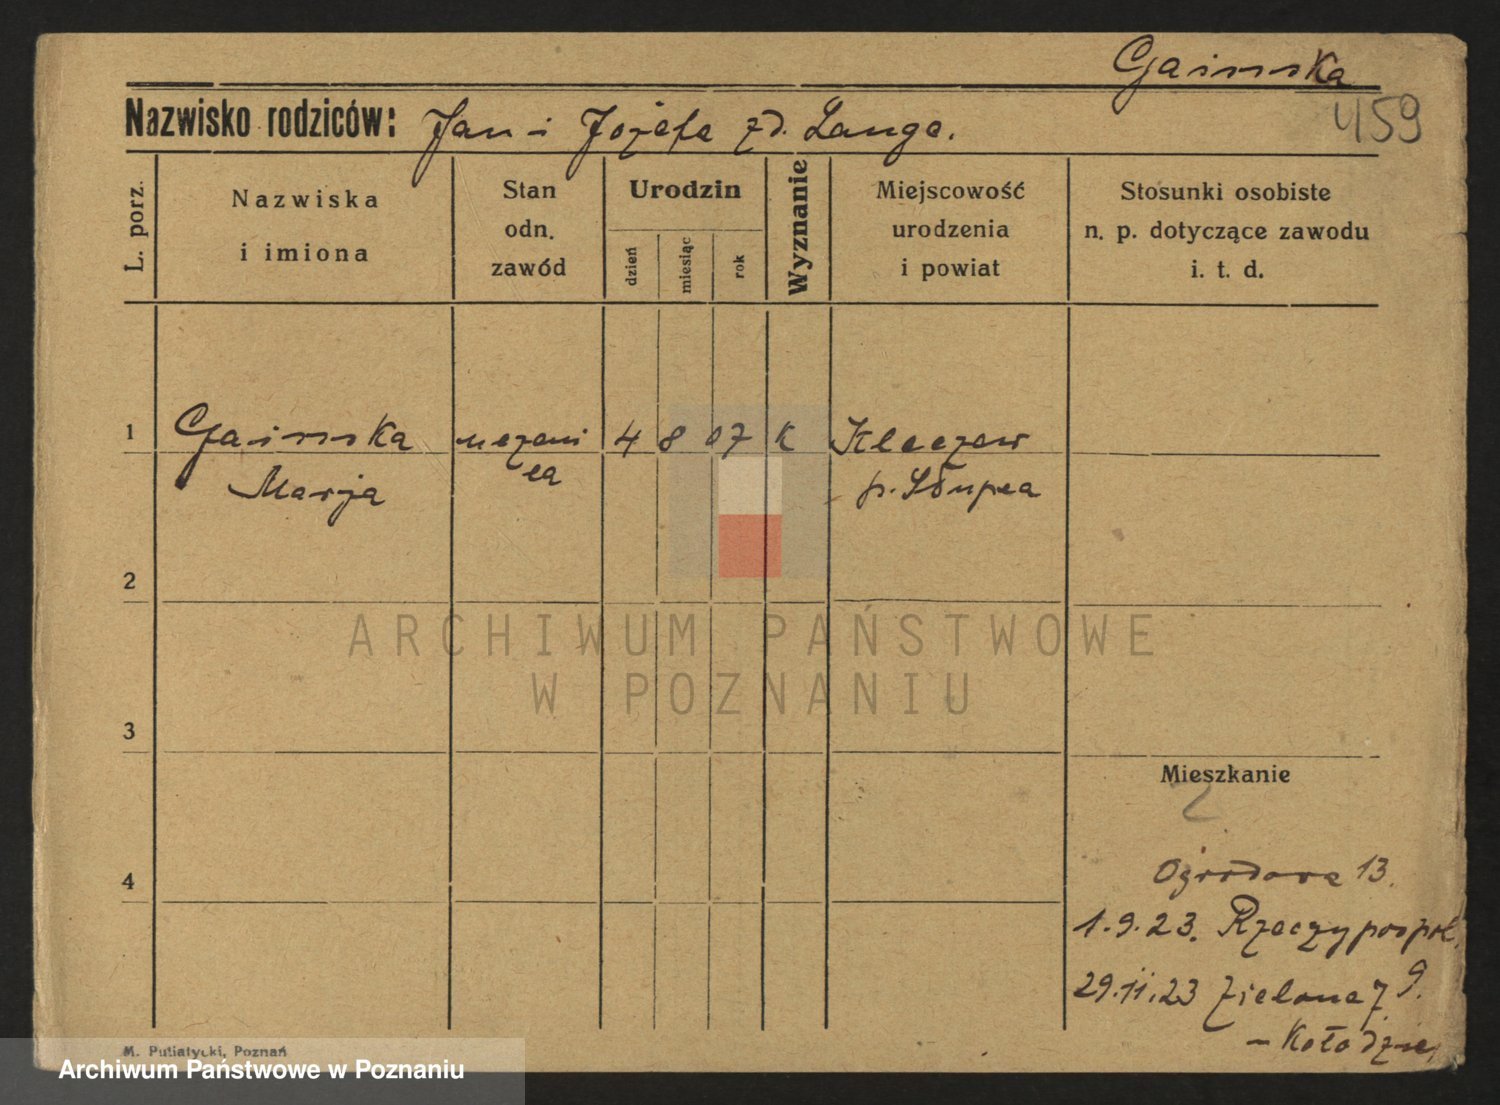 Gaimska
459
Nazwisko rodziców: Jan i Józefa zd. Lange.
L. porz.
Nazwiska i imiona
Stan odn. zawód
Urodzin
dzień
miesiąc
rok
Wyznanie
Miejscowość urodzenia i powiat
Stosunki osobiste n. p. dotyczące zawodu i. t. d.
1 Gaimska 4 8 07 K Kleczew
Marja p. Słupca
2
ARCHIWUM PAŃSTWOWE
W POZNANIU
3
Mieszkanie
4
Ogrodowa 13.
1.9.23. Rzeczypospol. 9.
29.11.23 Zielona 7
- Kołodziej
M. Putiatycki, Poznań
Archiwum Państwowe w Poznaniu